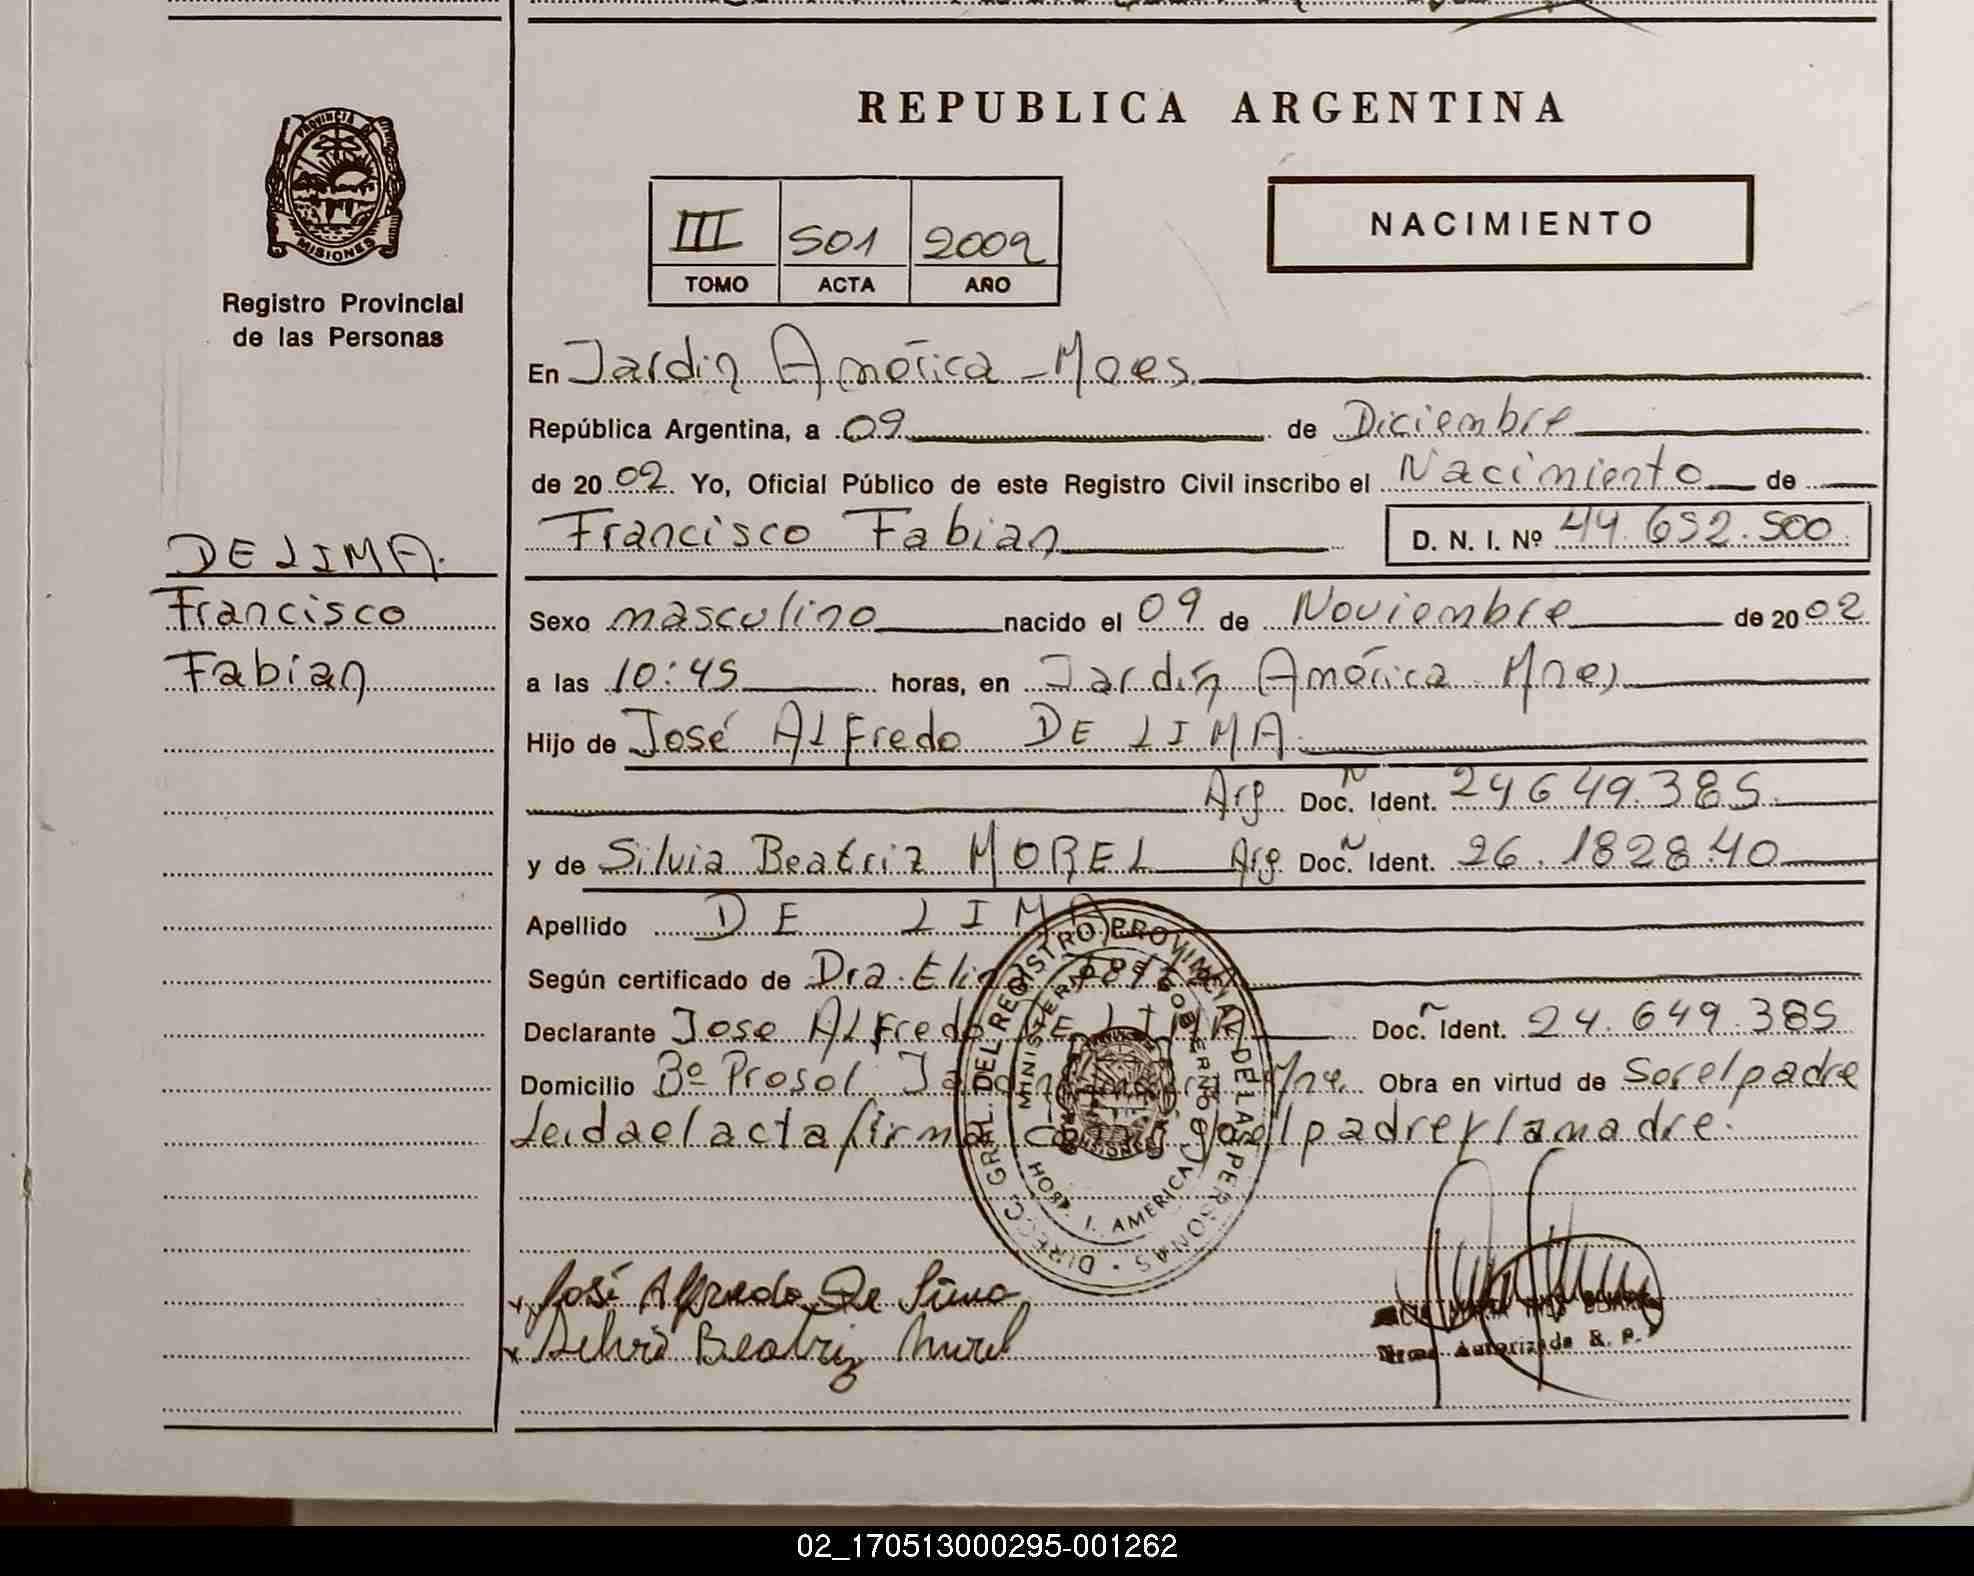 REPUBLICA ARGENTINA
PROVINCIA DE
MISIONES
Registro Provincial
de las Personas
III 501 2002
TOMO ACTA AÑO
NACIMIENTO
En Jardin América - Mnes.
República Argentina, a 09 de Diciembre
de 20 02 Yo, Oficial Público de este Registro Civil inscribo el Nacimiento de
Francisco Fabian D. N. I. Nº 44.652.500
DE LIMA.
Francisco
Fabian
Sexo masculino nacido el 09 de Noviembre de 20 02
a las 10:45 horas, en Jardín América Mnes
Hijo de José Alfredo DE LIMA
Arg Doc. Ident. 24649.385
y de Silvia Beatriz MOREL Arg Doc. Ident. 26.182840
Apellido DE LIMA
Según certificado de Dra.
Declarante Jose Alfredo DE LIMA Doc. Ident. 24.649.385
Domicilio Bº Prosol Jardin America Mne. Obra en virtud de Ser el padre
Leida el acta firma el padre y la madre.
DIRECC. GRAL. DEL REGISTRO PROVINCIAL DE LAS PERSONAS
MINISTERIO DE GOBIERNO
J. AMERICA
José Alfredo De Lima
Silvia Beatriz Morel
Firma Autorizada R. P.
02_170513000295-001262